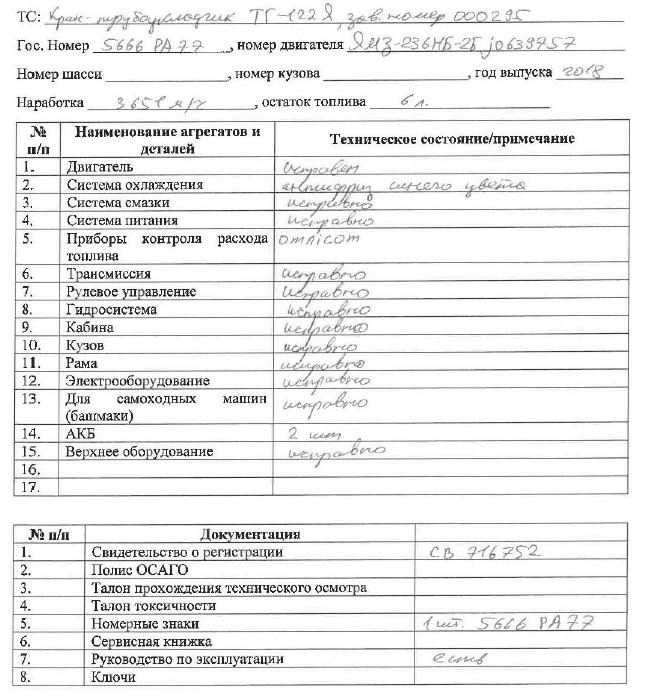 ТС: Кран-трубоукладчик ТГ-122Я зав. номер 000295
Гос. Номер 5666 РА 77, номер двигателя ЯМЗ-236НБ-2Б j0639757
Номер шасси , номер кузова , год выпуска 2018
Наработка 3651 м/ч, остаток топлива 6 л.
№ п/п Наименование агрегатов и деталей Техническое состояние/примечание
1. Двигатель исправен
2. Система охлаждения антифриз синего цвета
3. Система смазки исправно
4. Система питания исправно
5. Приборы контроля расхода топлива omnicom
6. Трансмиссия исправно
7. Рулевое управление исправно
8. Гидросистема исправно
9. Кабина исправно
10. Кузов исправно
11. Рама исправно
12. Электрооборудование исправно
13. Для самоходных машин (башмаки) исправно
14. АКБ 2 шт
15. Верхнее оборудование исправно
16.
17.
№ п/п Документация
1. Свидетельство о регистрации СВ 716752
2. Полис ОСАГО
3. Талон прохождения технического осмотра
4. Талон токсичности
5. Номерные знаки 1 шт. 5666 РА77
6. Сервисная книжка
7. Руководство по эксплуатации есть
8. Ключи